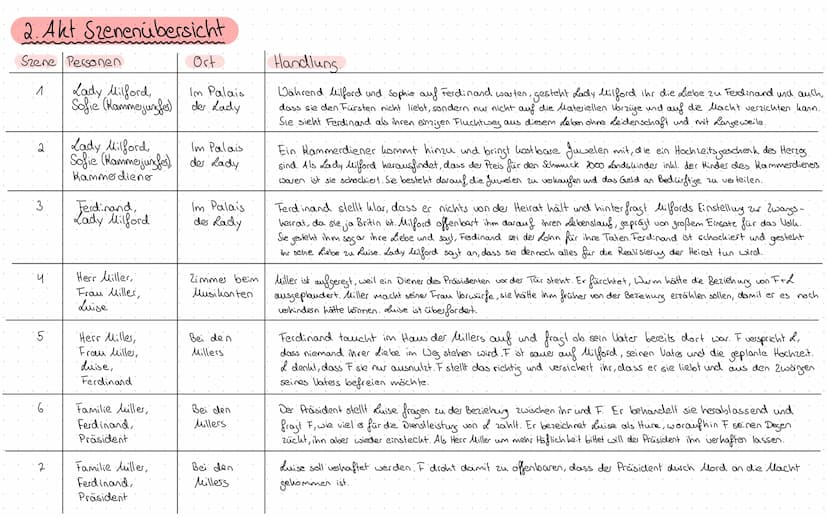 2. Akt Szenenübersicht
Szene Personen Ort Handlung
1
Lady Milford,
Sofie (Kammerjungfer)
Im Palais
der Lady
Während Milford und Sophie auf Ferdinand warten, gesteht Lady Milford ihr die Liebe zu Ferdinand und auch,
dass sie den Fürsten nicht liebt, sondern nur nicht auf die Materiellen Vorzüge und auf die Macht verzichten kann.
Sie sieht Ferdinand als ihren einzigen Fluchtweg aus diesem Leben ohne Leidenschaft und mit Langeweile.
2
Lady Milford,
Sofie (Kammerjungfer)
Kammerdiener
Im Palais
der Lady
Ein Kammerdiener kommt hinzu und bringt kostbare Juwelen mit, die ein Hochzeitsgeschenk des Herzog
sind. Als Lady Milford herausfindet, dass der Preis für den Schmuck 7000 Landskinder inkl. der Kinder des Kammerdieners
waren ist sie schockiert. Sie besteht darauf, die Juwelen zu verkaufen und das Geld an Bedürftige zu verteilen.
3
Ferdinand,
Lady Milford
Im Palais
der Lady
Ferdinand stellt klar, dass er nichts von der Heirat hält und hinterfragt Milfords Einstellung zur Zwangs-
heirat, da sie ja Britin ist. Milford offenbart ihm darauf ihren Lebenslauf, geprägt von großem Einsatz für das Volk.
Sie gesteht ihm sogar ihre Liebe und sagt, Ferdinand sei der Lohn für ihre Taten. Ferdinand ist schockiert und gesteht
ihr seine Liebe zu Luise. Lady Milford sagt an, dass sie dennoch alles für die Realisierung der Heirat tun wird.
4
Herr Miller,
Frau Miller,
Luise
Zimmer beim
Musikanten
Miller ist aufgeregt, weil ein Diener des Präsidenten vor der Tür steht. Er fürchtet, Wurm hätte die Beziehung von F+L
ausgeplaudert. Miller macht seiner Frau Vorwürfe, sie hätte ihm früher von der Beziehung erzählen sollen, damit er es noch
verhindern hätte können. Luise ist überfordert.
5
Herr Miller,
Frau Miller,
Luise,
Ferdinand
Bei den
Millers
Ferdinand taucht im Haus der Millers auf und fragt ob sein Vater bereits dort war. F verspricht L,
dass niemand ihrer Liebe im Weg stehen wird. F ist sauer auf Milford, seinen Vater und die geplante Hochzeit.
L denkt, dass F sie nur ausnutzt. F stellt das richtig und versichert ihr, dass er sie liebt und aus den Zwängen
seines Vaters befreien möchte.
6
Familie Miller,
Ferdinand,
Präsident
Bei den
Millers
Der Präsident stellt Luise fragen zu der Beziehung zwischen ihr und F. Er behandelt sie herablassend und
fragt F, wie viel er für die Dienstleistung von L zahlt. Er bezeichnet Luise als Hure, woraufhin F seinen Degen
zückt, ihn aber wieder einsteckt. Als Herr Miller um mehr Höflichkeit bittet will der Präsident ihn verhaften lassen.
7
Familie Miller,
Ferdinand,
Präsident
Bei den
Millers
Luise soll verhaftet werden. F droht damit zu offenbaren, dass der Präsident durch Mord an die Macht
gekommen ist.